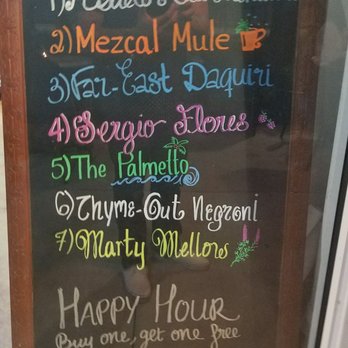 2) Mezcal Mule
3) Far-East Daquiri
4) Sergio Flores
5) The Palmetto
6) Thyme-Out Negroni
7) Marty Mellows
Happy Hour
Buy one, get one free